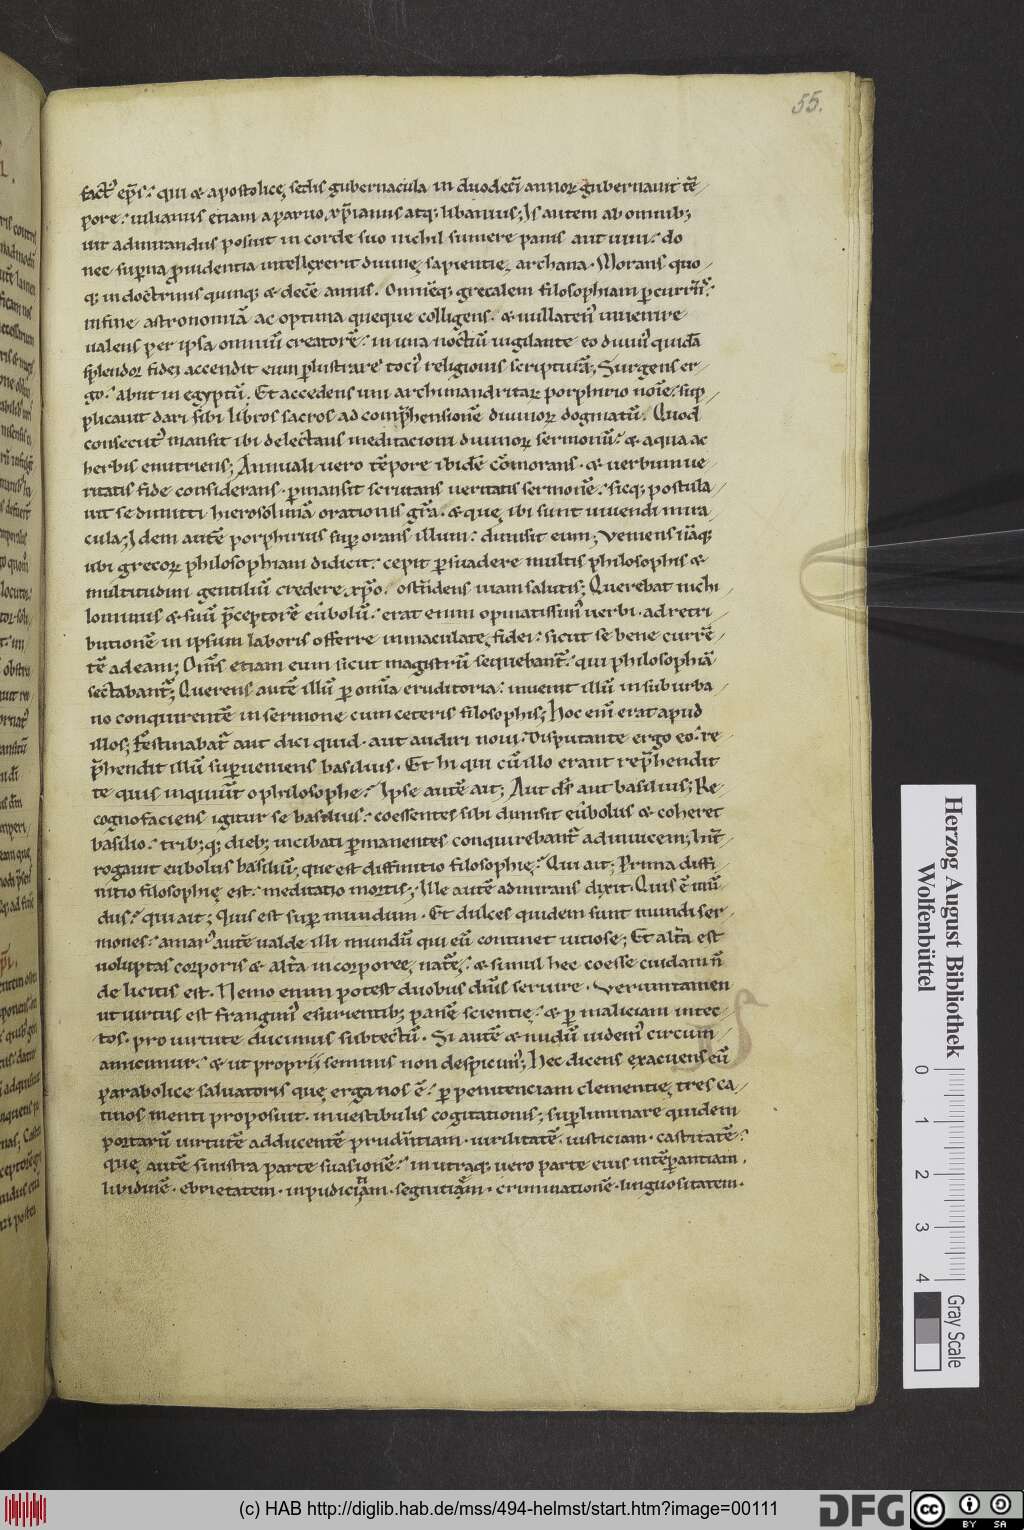 55.
fact᷒ ep̅s. qui & apostolicę sedis gubernacula in duodeci̅ annoꝝ gubernauit te̅
pore. iulianus etiam a paruo xp̅ianus atq; libanius; Is autem ab omnib;
uir admirandus posuit in corde suo nichil sumere panis aut uini. do
nec sup̲na p̲uidentia intellexerit diuinę sapientię archana. Morans quo
q; in doctrinis quinq; & dece̅ annis. Omne̅q; grecalem filosophiam p̲curr̅it.
in fine astronomia̅ ac optima queque colligens. & nullaten᷒ inuenire
ualens per ipsa omniu̅ creatore̅. in una noctiu̅ uigilante eo diuin᷒ quida̅
splendor fidei accendit eum p̲lustrare toci᷒ religionis scriptura̅; Surgens er
go. abiit in egyptu̅. Et accedens uni archimandritaꝝ porphirio no̅ie. sup
plicauit dari sibi libros sacros ad comp̅hensione̅ diuinoꝝ dogmatu̅. Quod
consecut᷒ mansit ibi delectans meditacioni diuinoꝝ sermonu̅. & aqua ac
herbis enutriens; Annuali uero te̅pore ibide̅ co̅morans. & uerbum ue
ritatis fide considerans. p̲mansit scrutans ueritatis sermone̅. sicq; postula
uit se dimitti hierosolima̅ orationis gr̅a. & quę ibi sunt uiuendi mira
cula; Idem aute̅ porphirius sup̲ orans illum. dimisit eum; Veniens ita̅q;
ubi grecoꝝ philosophiam didicit. cepit p̲suadere multis philosophis &
multitudini gentiliu̅ credere xp̅o. oste̅dens uiam salutis; Querebat nichi
lominus & suu̅ p̅ceptore̅ eubolu̅. erat enim opinatissim᷒ uerbi. ad retri
butione̅ in ipsum laboris offerre inmaculatę fidei. sicut se bene curre̅
te̅ ad eam; Om̅s etiam eum sicut magistru̅ sequebant᷑. qui philosophia̅
sectabant᷑; Querens aute̅ illu̅ p̲ omnia eruditoria. inuenit illu̅ in suburba
no conquirente̅ in sermone cum ceteris filosophis; Hoc eni̅ erat apud
illos; Festinabat᷑ aut dici quid. aut audiri noui. Disputante ergo eo. re
p̅hendit illu̅ sup̲ueniens basilius. Et hi qui cu̅ illo erant rep̅hendit
te quis inquiunt o philosophe. Ipse aute̅ ait; Aut d̅s aut basilius; Re
cognofaciens igitur se basilius. coessentes sibi dimisit eubolus & coheret
basilio. trib;q; dieb; incibati p̲manentes conquirebant᷑ adinuicem; Int̅
rogauit eubolus basiliu̅, que est diffinitio filosophię. Qui ait; Prima diffi
nitio filosophię est. meditatio mortis; Ille aute̅ admirans dixit. Quis e̅ mu̅
dus. qui ait; Quis est sup̲ mundum. Et dulces quidem sunt mundi ser
mones. amar᷒ aute̅ ualde illi mundu̅ qui eu̅ continet uitiose; Et alt̅a est
uoluptas corporis & alt̅a incorporeę nat᷑ę. & simul hec coesse cuidam n̅
de licitis est. Nemo enim potest duobus dn̅is seruire. Verumtamen
ut uirtus est frangim᷒ esurientib; pane̅ scientię. & p̲ maliciam intec
tos. pro uirtute ducimus subtectu̅. Si aute̅ & nudu̅ uidem᷒ circum
amicimur. & ut proprii seminis non despicim᷒; Hec dicens exacuens eu̅
parabolice saluatoris quę erga nos e̅. p̲ penitenciam clementię, tres ca
tinos menti proposuit. in uestibulis cogitationis; sup̲liminare quidem
portaru̅ uirtute̅ adducente̅ prude̅tiam. uirilitate̅. iusticiam. castitate̅.
quę aute̅ sinistra parte suasione̅. in utraq; uero parte eius inte̅p̲antiam.
libidine̅. ebrietatem. inpudiciam. segnitiam. criminatione̅. linguositatem.
Herzog August Bibliothek
Wolfenbüttel
0 1 2 3 4
Gray Scale
(c) HAB http://diglib.hab.de/mss/494-helmst/start.htm?image=00111
DFG
cc BY SA